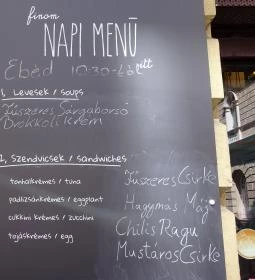 finom
NAPI MENÜ
itt
Ebéd 10:30-tól
1, Levesek / soups
Fűszeres Sárgaborsó
Brokkoli krém
2, Szendvicsek / sandwiches
tonhalkrémes / tuna
padlizsánkrémes / eggplant
cukkini krémes / zucchini
tojáskrémes / egg
Fűszeres Csirke
Hagymás Máj
Chilis Ragu
Mustáros Csirke